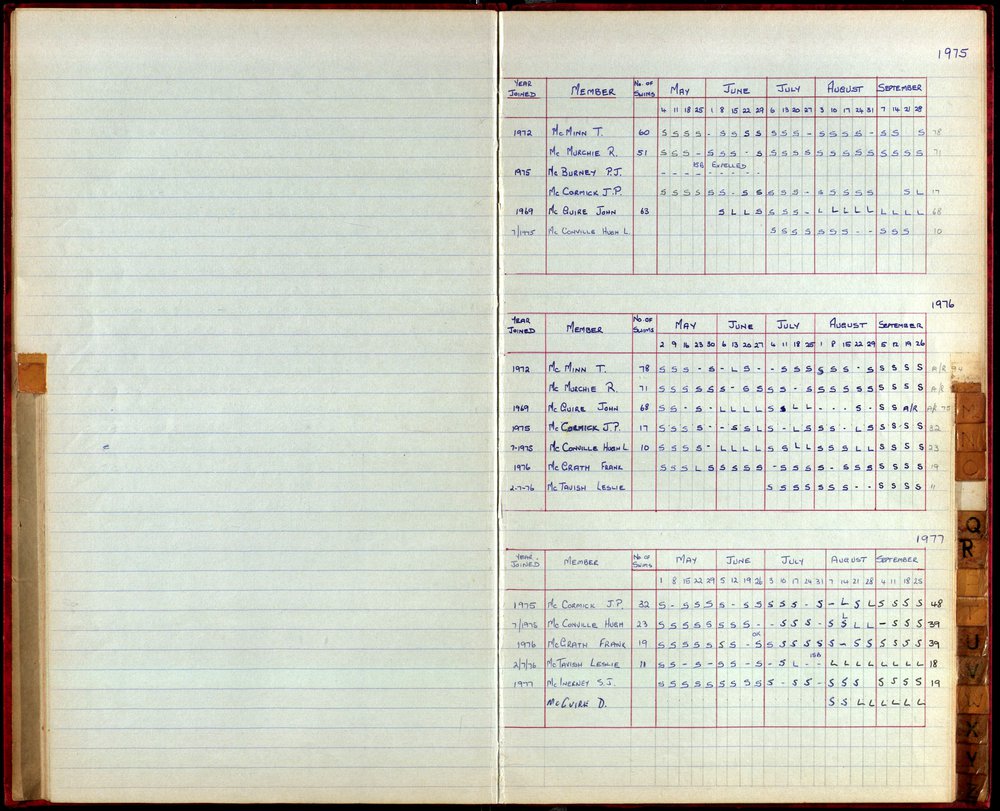 1975
YEAR JOINED MEMBER No. OF SWIMS MAY JUNE JULY AUGUST SEPTEMBER
4 11 18 25 1 8 15 22 29 6 13 20 27 3 10 17 24 31 7 14 21 28
1972 McMINN T. 60 S S S S - S S S S S S S - S S S S - S S S 78
Mc MURCHIE R. 51 S S S - S S S - S S S S S S S S S S S S S S 71
ISB EXPELLED
1975 Mc BURNEY P.J. - - - - - - - - -
Mc CORMICK J.P. S S S S S S - S S S S S - S S S S S S L 17
1969 Mc GUIRE JOHN 63 S L L S S S S - L L L L L L L L L 68
7/1975 Mc CONVILLE HUGH L. S S S S S S S - - S S S 10
1976
YEAR JOINED MEMBER No. OF SWIMS MAY JUNE JULY AUGUST SEPTEMBER
2 9 16 23 30 6 13 20 27 4 11 18 25 1 8 15 22 29 5 12 19 26
1972 Mc MINN T. 78 S S S - S - L S - - S S S S S S - S S S S S A/R 94
Mc MURCHIE R. 71 S S S S S S - S S S S - S S S S S S S S S S A/R
1969 Mc GUIRE JOHN 68 S S - S - L L L L S S L L - - - S - S S A/R A/R 75
1975 Mc CORMICK J.P. 17 S S S S - - S S L S - L S S S - L S S S S S 32
7-1975 Mc CONVILLE HUGH L 10 S S S S - L L L L S S L L S S S L L S S S S 23
1976 Mc GRATH FRANK S S S L S S S S S - S S S S - S S S S S S S 19
2-7-76 Mc TAVISH LESLIE S S S S S S S - - S S S S 11
1977
YEAR JOINED MEMBER No OF SWIMS MAY JUNE JULY AUGUST SEPTEMBER
1 8 15 22 29 5 12 19 26 3 10 17 24 31 7 14 21 28 4 11 18 25
1975 Mc CORMICK J.P. 32 S - S S S - S S S S S S - S - L S L S S S S 48
7/1975 Mc CONVILLE HUGH 23 S S S S S S S S - - S S S - S S L L - S S S 39
1976 McGRATH FRANK 19 S S S S S S S - S S S S S S S - S S S S S S 39
2/7/76 McTAVISH LESLIE 11 S S - S - S S - S - S L - - L L L L L L L L 18
ISB
1977 McINERNEY S.J. S S S S S S S S S S - S S - S S S S S S S 19
McGUIRE D. S S L L L L L L
M
N
O
Q
R
T
U
V
W
X
Y
Z